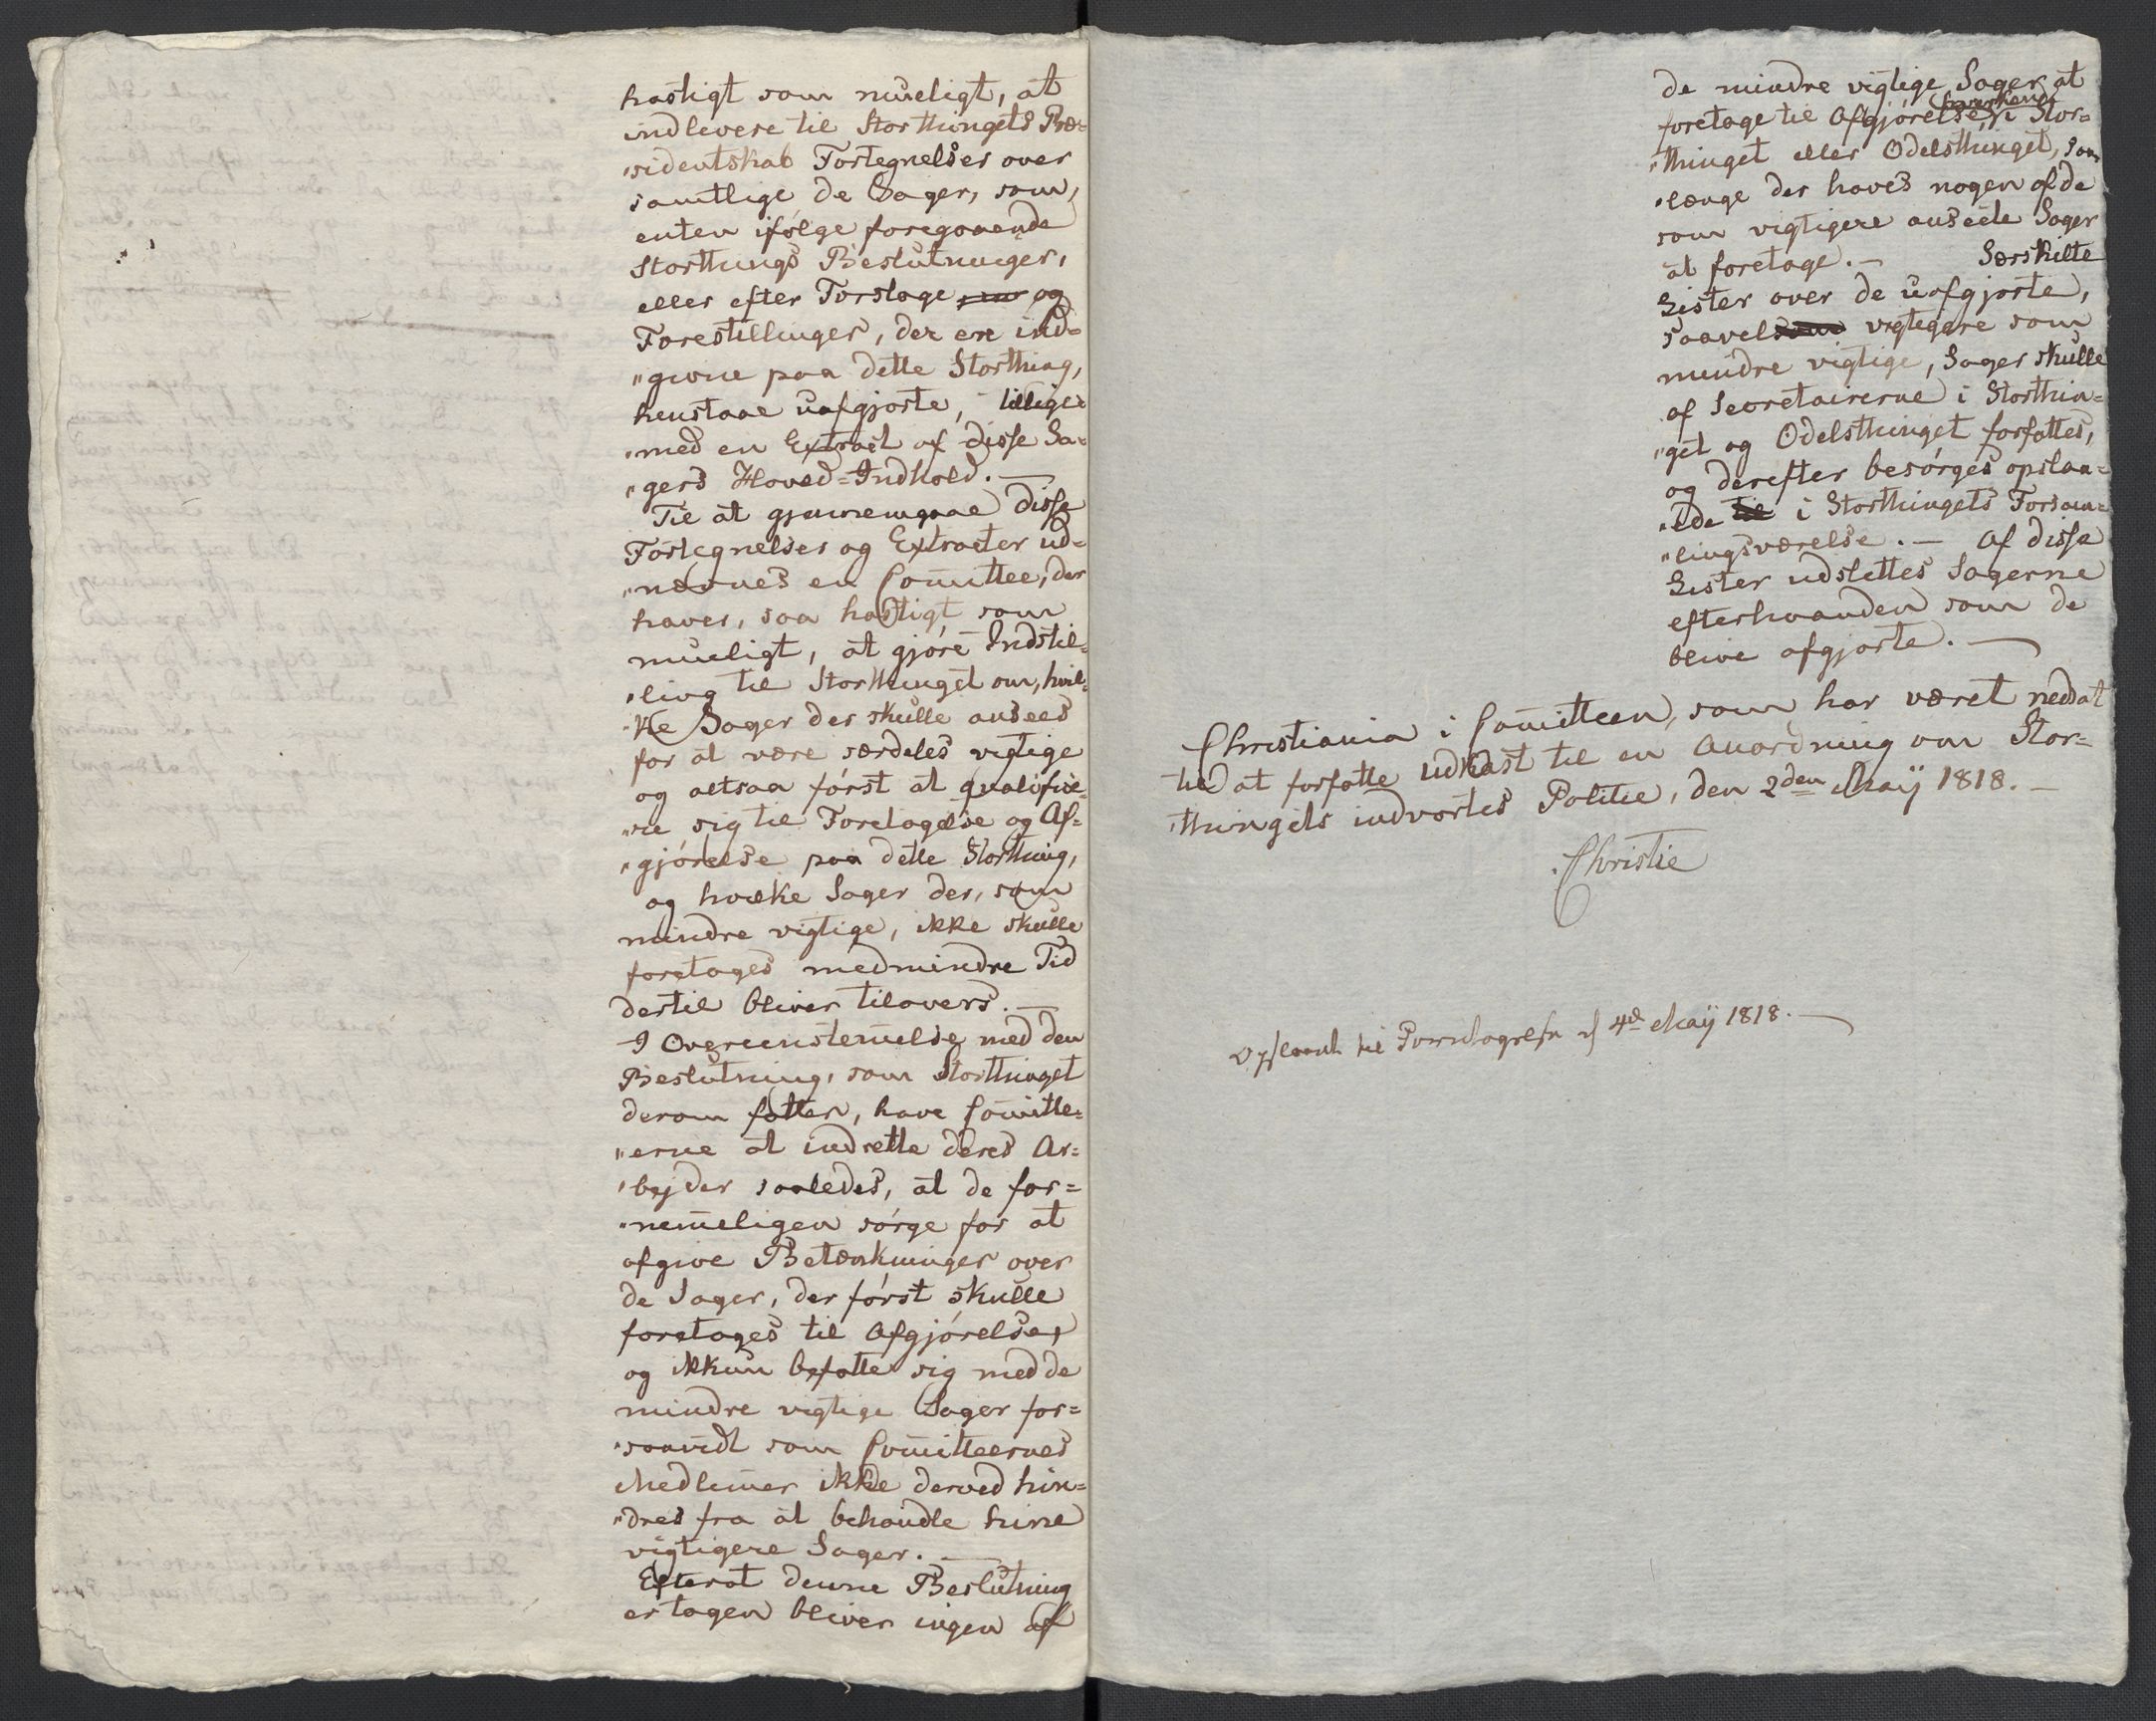 hastigt som mueligt, at
indlevere til Storthingets Præ=
„sidentskab Fortegnelser over
samtlige de Sager, som,
enten ifølge foregaaende
Storthings Beslutninger,
eller efter Forslage og
Forestillinger, der ere ind=
„givne paa dette Storthing,
henstaae uafgjorte, tillige
„med en Extract af disse Sa=
„gers Hoved=Indhold. —
Til at gjennemgaae disse
Fortegnelser og Extracter ud=
„nævnes en Com̄ittee, der
haver, saa hastigt som
mueligt, at gjøre Indstil=
„ling til Storthinget om, hvil=
„ke Sager der skulle ansees
for at være særdeles vigtige
og altsaa først at qvalifice=
„re sig til Foretagelse og Af=
„gjørelse paa dette Storthing,
og hvilke Sager der, som
mindre vigtige, ikke skulle
foretages medmindre Tid
dertil bliver tilovers. —
I Overeenstem̄else med den
Beslutning, som Storthinget
derom fatter, have Com̄itte=
„erne at indrette deres Ar=
„bejder saaledes, at de for=
„nem̄eligen sørge for at
afgive Betænkninger over
de Sager, der først skulle
foretages til Afgjørelse,
og ikkun befatte sig med de
mindre vigtige Sager for=
„saavidt som Com̄itteernes
Medlem̄er ikke derved hin=
„dres fra at behandle hine
vigtigere Sager. —
Efterat denne Beslutning
er tagen bliver ingen af
de mindre vigtige Sager at
foretage til Afgjørelse hverken i Stor=
„thinget eller Odelsthinget, saa
„længe der haves nogen af de
som vigtigere anseete Sager
at foretage. — Særskilte
Lister over de uafgjorte,
saavel vigtigere som
mindre vigtige, Sager skulle
af Secretairerne i Storthin=
„get og Odelsthinget forfattes,
og derefter besørges opslaa=
„ede i Storthingets Forsam=
„lingsværelse. — Af disse
Lister udslettes Sagerne
efterhaanden som de
blive afgjorte. —
Christiania i Com̄itteen, som har været nedsat
til at forfatte Udkast til en Anordning om Stor=
„thingets indvortes Politie, den 2den Maij 1818. —
Christie
Opslaaet til Foredragelse d 4de Maij 1818. —